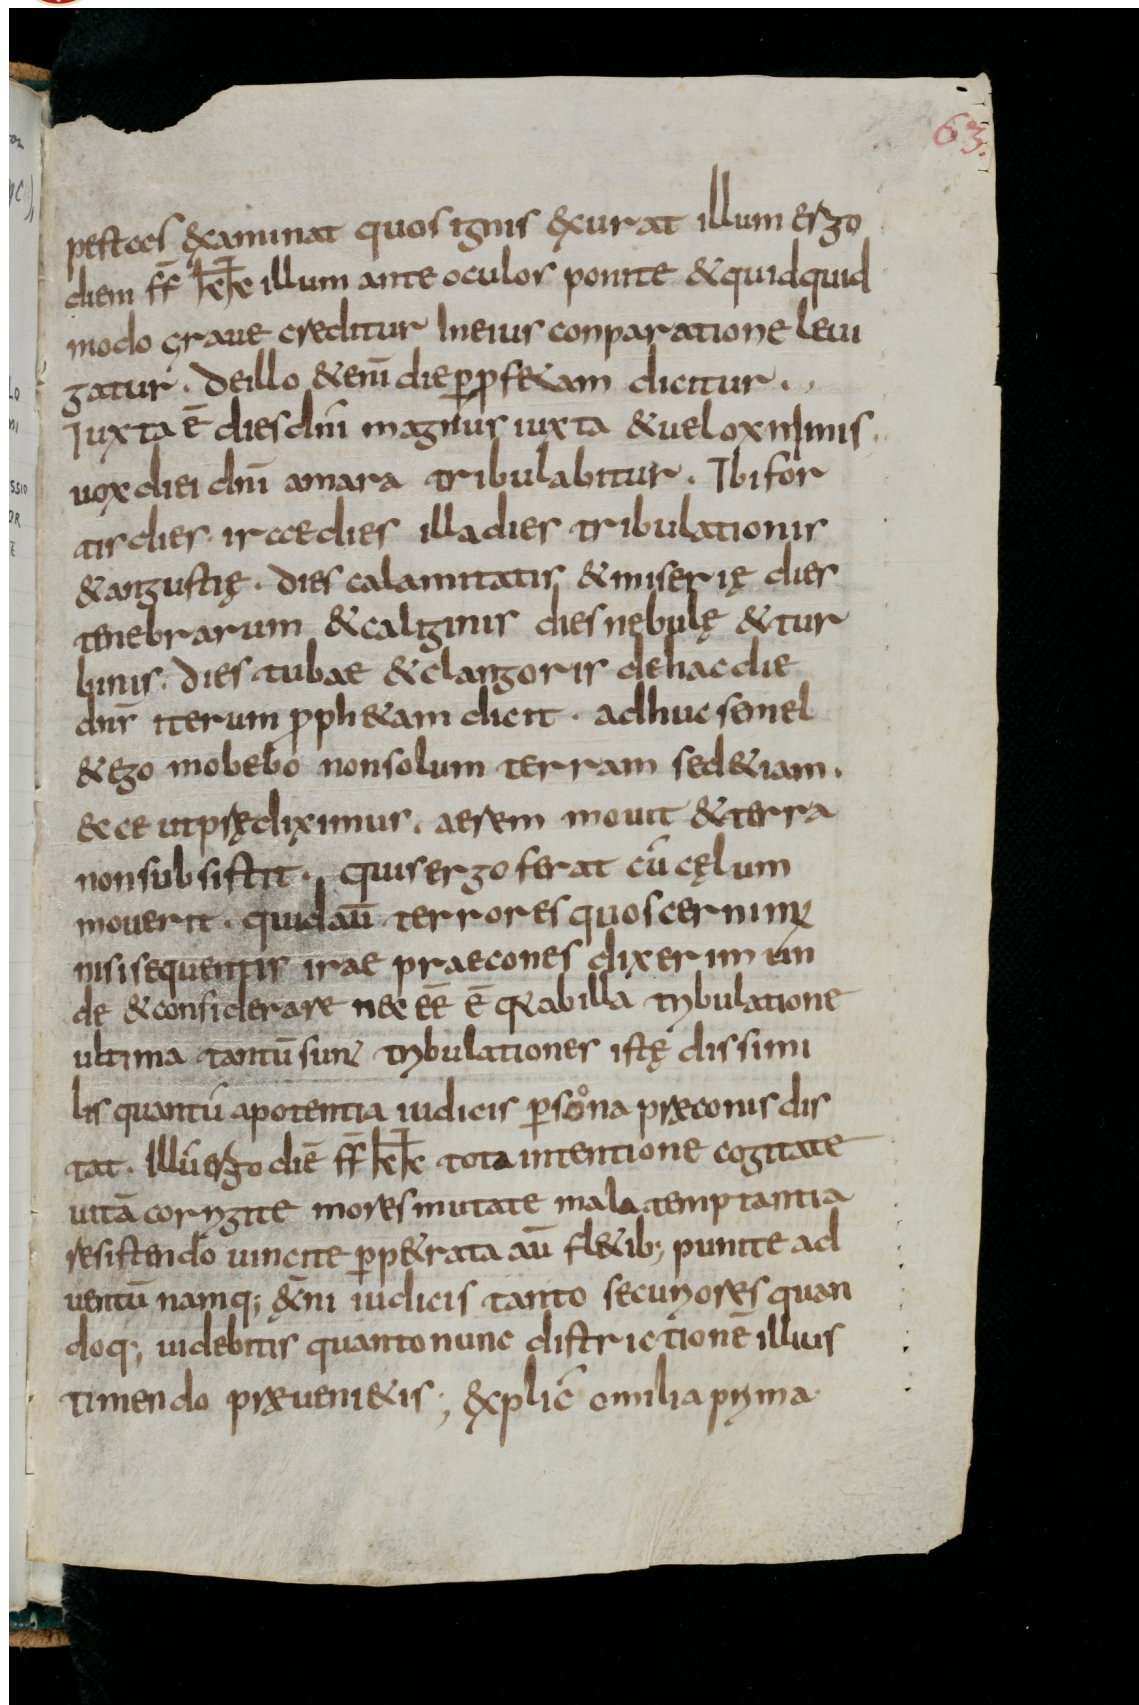 63.
pestas examinat quos ignis exurat illum ergo
diem ff k̄k̄ illum ante oculos ponite & quidquid
modo graue creditur In eius conparatione leui
gatur. De illo & enī die p̱ p̱f&am dicitur.
Iuxta ē dies dn̄i magnus iuxta & uelox nimis.
uox diei dn̄i amara tribulabitur. Ibi for
tis dies irae dies illa dies tribulationis
& angustię. dies calamitatis & miserię dies
tenebrarum & caliginis dies nebulę & tur
binis. dies tubae & clangoris de hac die
dn̄s iterum proph&am dicit. adhuc semel
& ego mobebo non solum terram sed &iam.
ecce ut prędiximus. aerem mouit & terra
non subsistit. quis ergo ferat cū cęlum
mouerit. quid aū terrores quos cernimus
nisi sequentis irae praecones dixerim un
de & considerare nec ēe ē quia ab illa tribulatione
ultima tantū sunt tribulationes istę dissimi
lis quantū a potentia iudicis persona pręconis dis
tat. Illū ergo diē ff k̄k̄ tota intentione cogitate
uitā corrigite mores mutate mala temptantia
resistendo uincite p̱p&rata aū fl&ib; punite ad
uentū namq; &̄ni iudicis tanto securiores quan
doq; uidebitis quanto nunc districtionē illius
timendo pręueni&is; explic̄ omilia prima